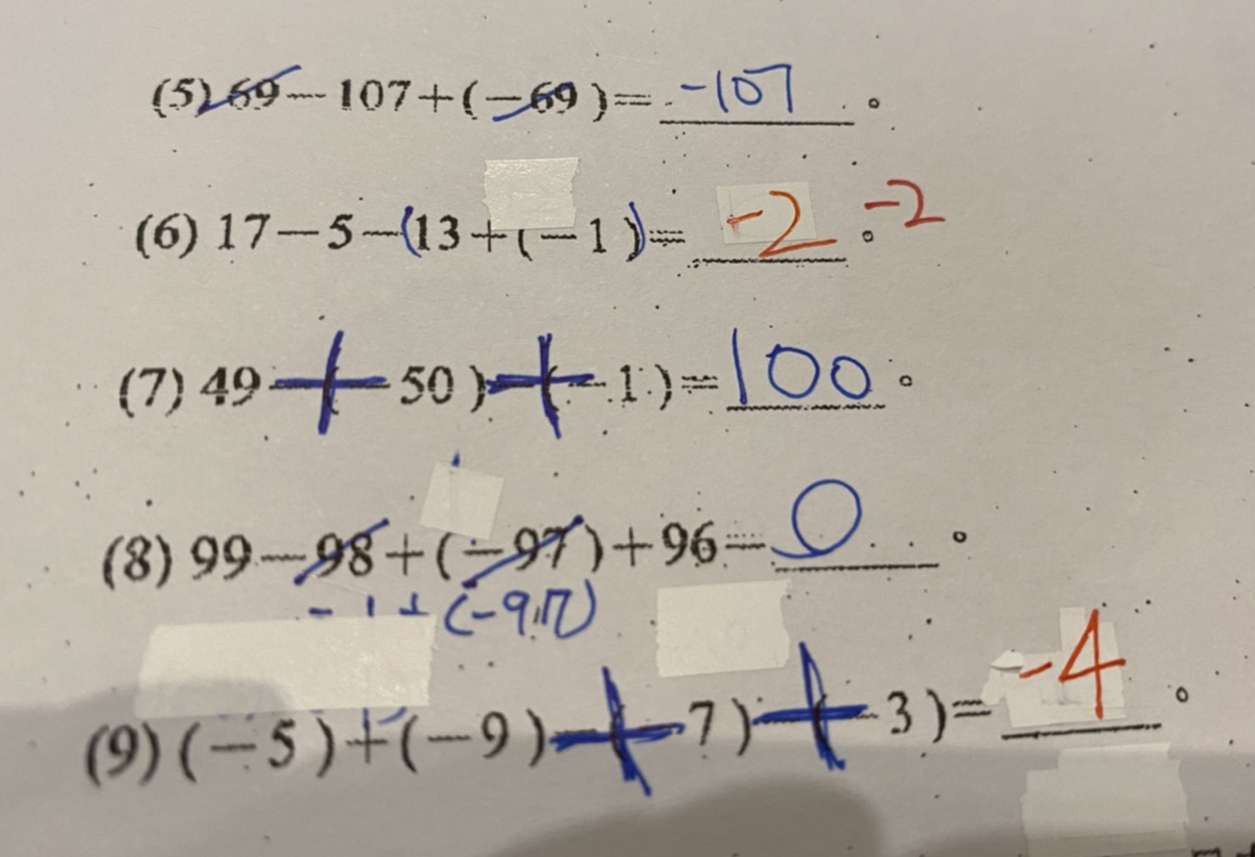 (5) 69－107＋(－69)＝ -107 。
(6) 17－5－(13＋(－1)＝ -2 。 -2
(7) 49－(－50)－(－1)＝ 100 。
(8) 99－98＋(－97)＋96＝ 0 。
- 1 + (-97)
(9) (－5)＋(－9)－(－7)－(－3)＝ -4 。